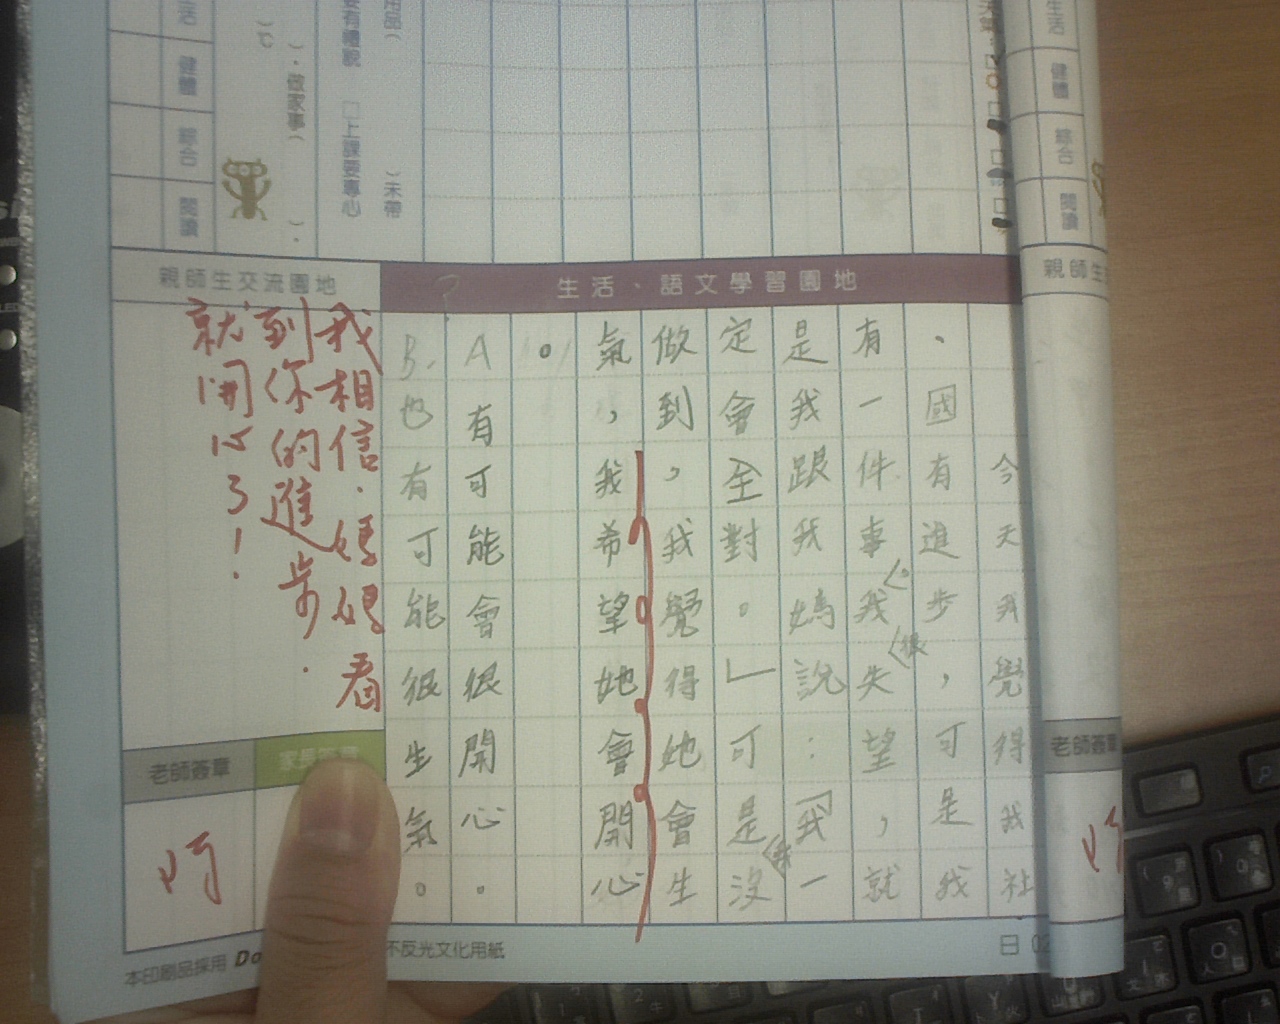 生活
健體
綜合
閱讀
用品（
）未帶
要有禮貌 □上課要專心
）、做家事（
）、
生活
健體
綜合
閱讀
親師生交流園地
生活、語文學習園地
親師生
今天我覺得我社
、國有進步，可是我
有一件事。我很失望，就
是我跟我媽說：「我一
定會全對。」可是我沒
做到，我覺得她會生
氣，我希望她會開心
。
A有可能會很開心。
B.也有可能很生氣。
我相信．媽媽看
到你的進步．
就開心了！
老師簽章
老師簽章
本印刷品採用 Do
不反光文化用紙
日 02